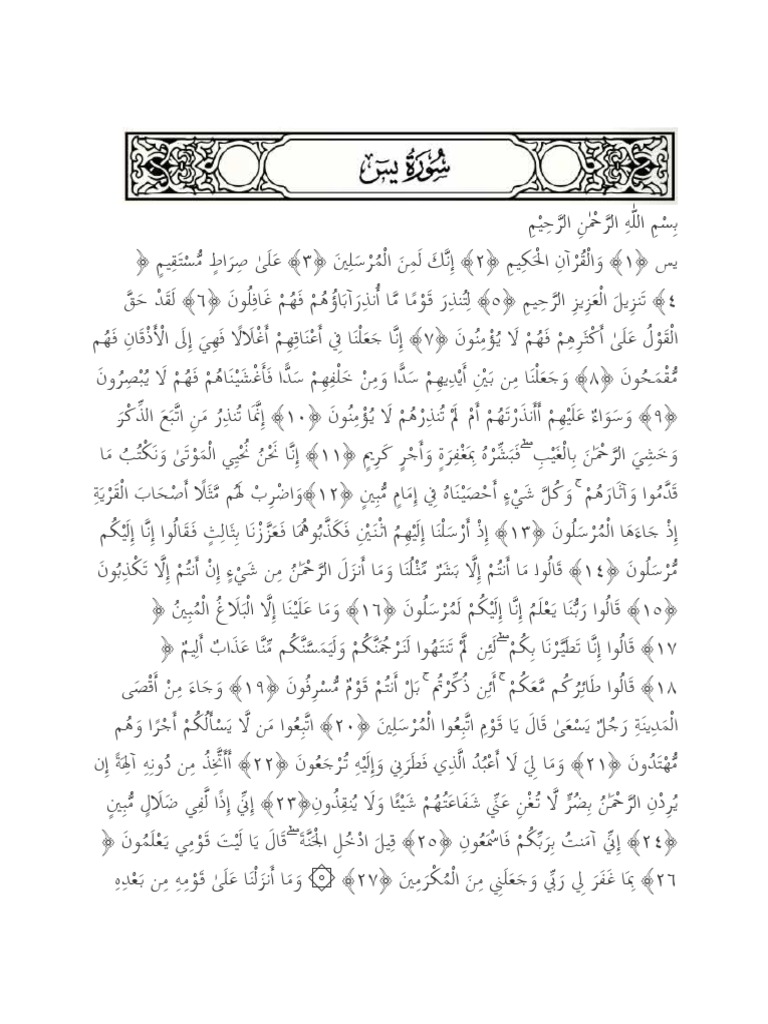 سُورَةُ يسٓ
بِسْمِ اللّٰهِ الرَّحْمٰنِ الرَّحِيْمِ
يس ﴿١﴾ وَالْقُرْآنِ الْحَكِيمِ ﴿٢﴾ إِنَّكَ لَمِنَ الْمُرْسَلِينَ ﴿٣﴾ عَلَىٰ صِرَاطٍ مُّسْتَقِيمٍ ﴿
٤﴾ تَنزِيلَ الْعَزِيزِ الرَّحِيمِ ﴿٥﴾ لِتُنذِرَ قَوْمًا مَّا أُنذِرَ آبَاؤُهُمْ فَهُمْ غَافِلُونَ ﴿٦﴾ لَقَدْ حَقَّ
الْقَوْلُ عَلَىٰ أَكْثَرِهِمْ فَهُمْ لَا يُؤْمِنُونَ ﴿٧﴾ إِنَّا جَعَلْنَا فِي أَعْنَاقِهِمْ أَغْلَالًا فَهِيَ إِلَى الْأَذْقَانِ فَهُم
مُّقْمَحُونَ ﴿٨﴾ وَجَعَلْنَا مِن بَيْنِ أَيْدِيهِمْ سَدًّا وَمِنْ خَلْفِهِمْ سَدًّا فَأَغْشَيْنَاهُمْ فَهُمْ لَا يُبْصِرُونَ
﴿٩﴾ وَسَوَاءٌ عَلَيْهِمْ أَأَنذَرْتَهُمْ أَمْ لَمْ تُنذِرْهُمْ لَا يُؤْمِنُونَ ﴿١٠﴾ إِنَّمَا تُنذِرُ مَنِ اتَّبَعَ الذِّكْرَ
وَخَشِيَ الرَّحْمَٰنَ بِالْغَيْبِ ۖ فَبَشِّرْهُ بِمَغْفِرَةٍ وَأَجْرٍ كَرِيمٍ ﴿١١﴾ إِنَّا نَحْنُ نُحْيِي الْمَوْتَىٰ وَنَكْتُبُ مَا
قَدَّمُوا وَآثَارَهُمْ ۚ وَكُلَّ شَيْءٍ أَحْصَيْنَاهُ فِي إِمَامٍ مُّبِينٍ ﴿١٢﴾ وَاضْرِبْ لَهُم مَّثَلًا أَصْحَابَ الْقَرْيَةِ
إِذْ جَاءَهَا الْمُرْسَلُونَ ﴿١٣﴾ إِذْ أَرْسَلْنَا إِلَيْهِمُ اثْنَيْنِ فَكَذَّبُوهُمَا فَعَزَّزْنَا بِثَالِثٍ فَقَالُوا إِنَّا إِلَيْكُم
مُّرْسَلُونَ ﴿١٤﴾ قَالُوا مَا أَنتُمْ إِلَّا بَشَرٌ مِّثْلُنَا وَمَا أَنزَلَ الرَّحْمَٰنُ مِن شَيْءٍ إِنْ أَنتُمْ إِلَّا تَكْذِبُونَ
﴿١٥﴾ قَالُوا رَبُّنَا يَعْلَمُ إِنَّا إِلَيْكُمْ لَمُرْسَلُونَ ﴿١٦﴾ وَمَا عَلَيْنَا إِلَّا الْبَلَاغُ الْمُبِينُ ﴿
١٧﴾ قَالُوا إِنَّا تَطَيَّرْنَا بِكُمْ ۖ لَئِن لَّمْ تَنتَهُوا لَنَرْجُمَنَّكُمْ وَلَيَمَسَّنَّكُم مِّنَّا عَذَابٌ أَلِيمٌ ﴿
١٨﴾ قَالُوا طَائِرُكُم مَّعَكُمْ ۚ أَئِن ذُكِّرْتُم ۚ بَلْ أَنتُمْ قَوْمٌ مُّسْرِفُونَ ﴿١٩﴾ وَجَاءَ مِنْ أَقْصَى
الْمَدِينَةِ رَجُلٌ يَسْعَىٰ قَالَ يَا قَوْمِ اتَّبِعُوا الْمُرْسَلِينَ ﴿٢٠﴾ اتَّبِعُوا مَن لَّا يَسْأَلُكُمْ أَجْرًا وَهُم
مُّهْتَدُونَ ﴿٢١﴾ وَمَا لِيَ لَا أَعْبُدُ الَّذِي فَطَرَنِي وَإِلَيْهِ تُرْجَعُونَ ﴿٢٢﴾ أَأَتَّخِذُ مِن دُونِهِ آلِهَةً إِن
يُرِدْنِ الرَّحْمَٰنُ بِضُرٍّ لَّا تُغْنِ عَنِّي شَفَاعَتُهُمْ شَيْئًا وَلَا يُنقِذُونِ ﴿٢٣﴾ إِنِّي إِذًا لَّفِي ضَلَالٍ مُّبِينٍ
﴿٢٤﴾ إِنِّي آمَنتُ بِرَبِّكُمْ فَاسْمَعُونِ ﴿٢٥﴾ قِيلَ ادْخُلِ الْجَنَّةَ ۖ قَالَ يَا لَيْتَ قَوْمِي يَعْلَمُونَ ﴿
٢٦﴾ بِمَا غَفَرَ لِي رَبِّي وَجَعَلَنِي مِنَ الْمُكْرَمِينَ ﴿٢٧﴾ ۞ وَمَا أَنزَلْنَا عَلَىٰ قَوْمِهِ مِن بَعْدِهِ